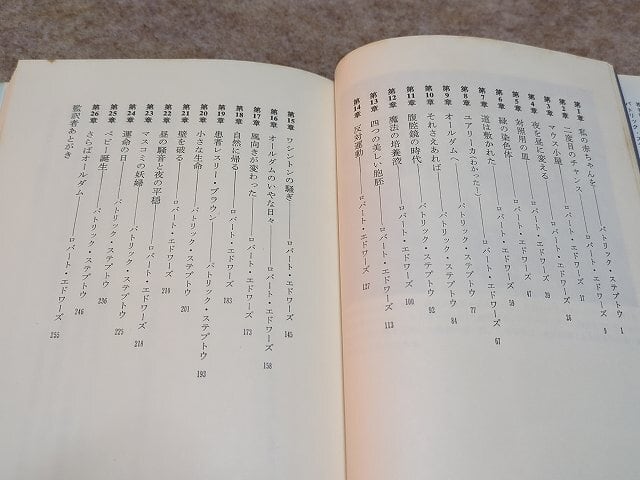 第1章 私の赤ちゃんを――パトリック・ステプトウ 1
第2章 二度目のチャンス――ロバート・エドワーズ 9
第3章 マウス小屋――ロバート・エドワーズ 17
第4章 夜を昼に変える――ロバート・エドワーズ 26
第5章 対照用の皿――ロバート・エドワーズ 39
第6章 緑の染色体――ロバート・エドワーズ 47
第7章 道は敷かれた――ロバート・エドワーズ 59
第8章 ユアリーカ(わかった!)――ロバート・エドワーズ 67
第9章 オールダムへ――パトリック・ステプトウ 77
第10章 それさえあれば――パトリック・ステプトウ 84
第11章 腹腔鏡の時代――パトリック・ステプトウ 92
第12章 魔法の培養液――ロバート・エドワーズ 100
第13章 四つの美しい胞胚――ロバート・エドワーズ 113
第14章 反対運動――ロバート・エドワーズ 127
第15章 ワシントンの騒ぎ――ロバート・エドワーズ 145
第16章 オールダムのいやな日々――ロバート・エドワーズ 158
第17章 風向きが変わった――ロバート・エドワーズ 173
第18章 自然に帰る――ロバート・エドワーズ 183
第19章 患者レスリー・ブラウン――パトリック・ステプトウ 193
第20章 小さな生命――パトリック・ステプトウ 201
第21章 壁を破る――ロバート・エドワーズ 210
第22章 昼の騒音と夜の平穏――ロバート・エドワーズ 218
第23章 マスコミの妖婦――パトリック・ステプトウ 225
第24章 運命の日――パトリック・ステプトウ 236
第25章 ベビー誕生――パトリック・ステプトウ 246
第26章 さらばオールダム――ロバート・エドワーズ 255
監訳者あとがき